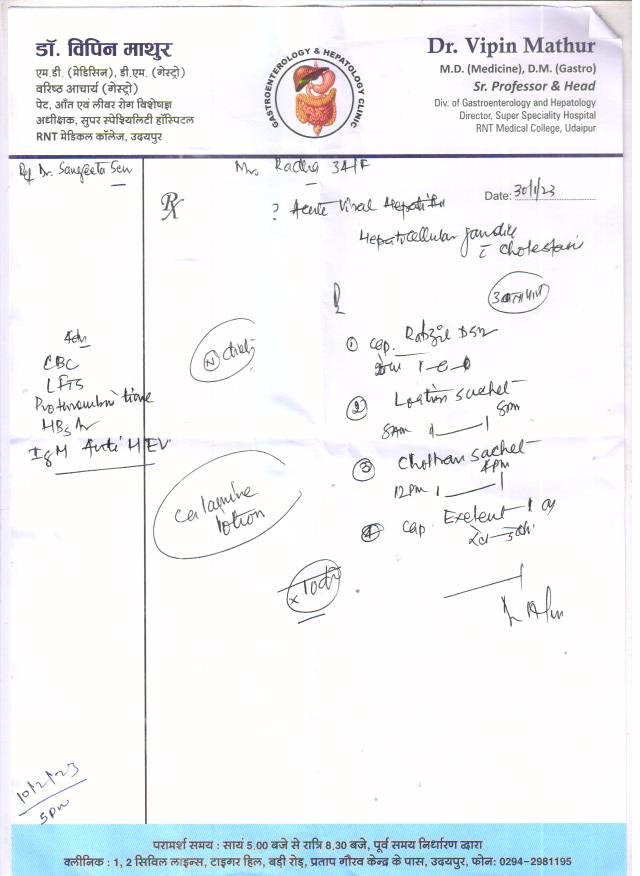 डॉ. विपिन माथुर
एम.डी. (मेडिसिन), डी.एम. (गेस्ट्रो)
वरिष्ठ आचार्य (गेस्ट्रो)
पेट, आँत एवं लीवर रोग विशेषज्ञ
अधीक्षक, सुपर स्पेश्यिलिटी हॉस्पिटल
RNT मेडिकल कॉलेज, उदयपुर
GASTROENTEROLOGY & HEPATOLOGY CLINIC
Dr. Vipin Mathur
M.D. (Medicine), D.M. (Gastro)
Sr. Professor & Head
Div. of Gastroenterology and Hepatology
Director, Super Speciality Hospital
RNT Medical College, Udaipur
Ref Dr. Sangeeta Sen
Mrs Radha 34/F
Date: 30/1/23
Rx
? Acute Viral Hepatitis
Hepatocellular Jaundice
c Cholestasis
Adv
CBC
LFTS
Prothrombin time
HBsAg
IgM Anti HEV
N diet
① Cap.
② Lootion Sachet
8AM 8PM
③ Choltran Sachet
12PM 4PM
④ Cap. Exetent
Calamine lotion
x 10d
10/2/23
5pm
परामर्श समय : सायं 5.00 बजे से रात्रि 8.30 बजे, पूर्व समय निर्धारण द्वारा
क्लीनिक : 1, 2 सिविल लाइन्स, टाइगर हिल, बड़ी रोड़, प्रताप गौरव केन्द्र के पास, उदयपुर, फोन: 0294-2981195